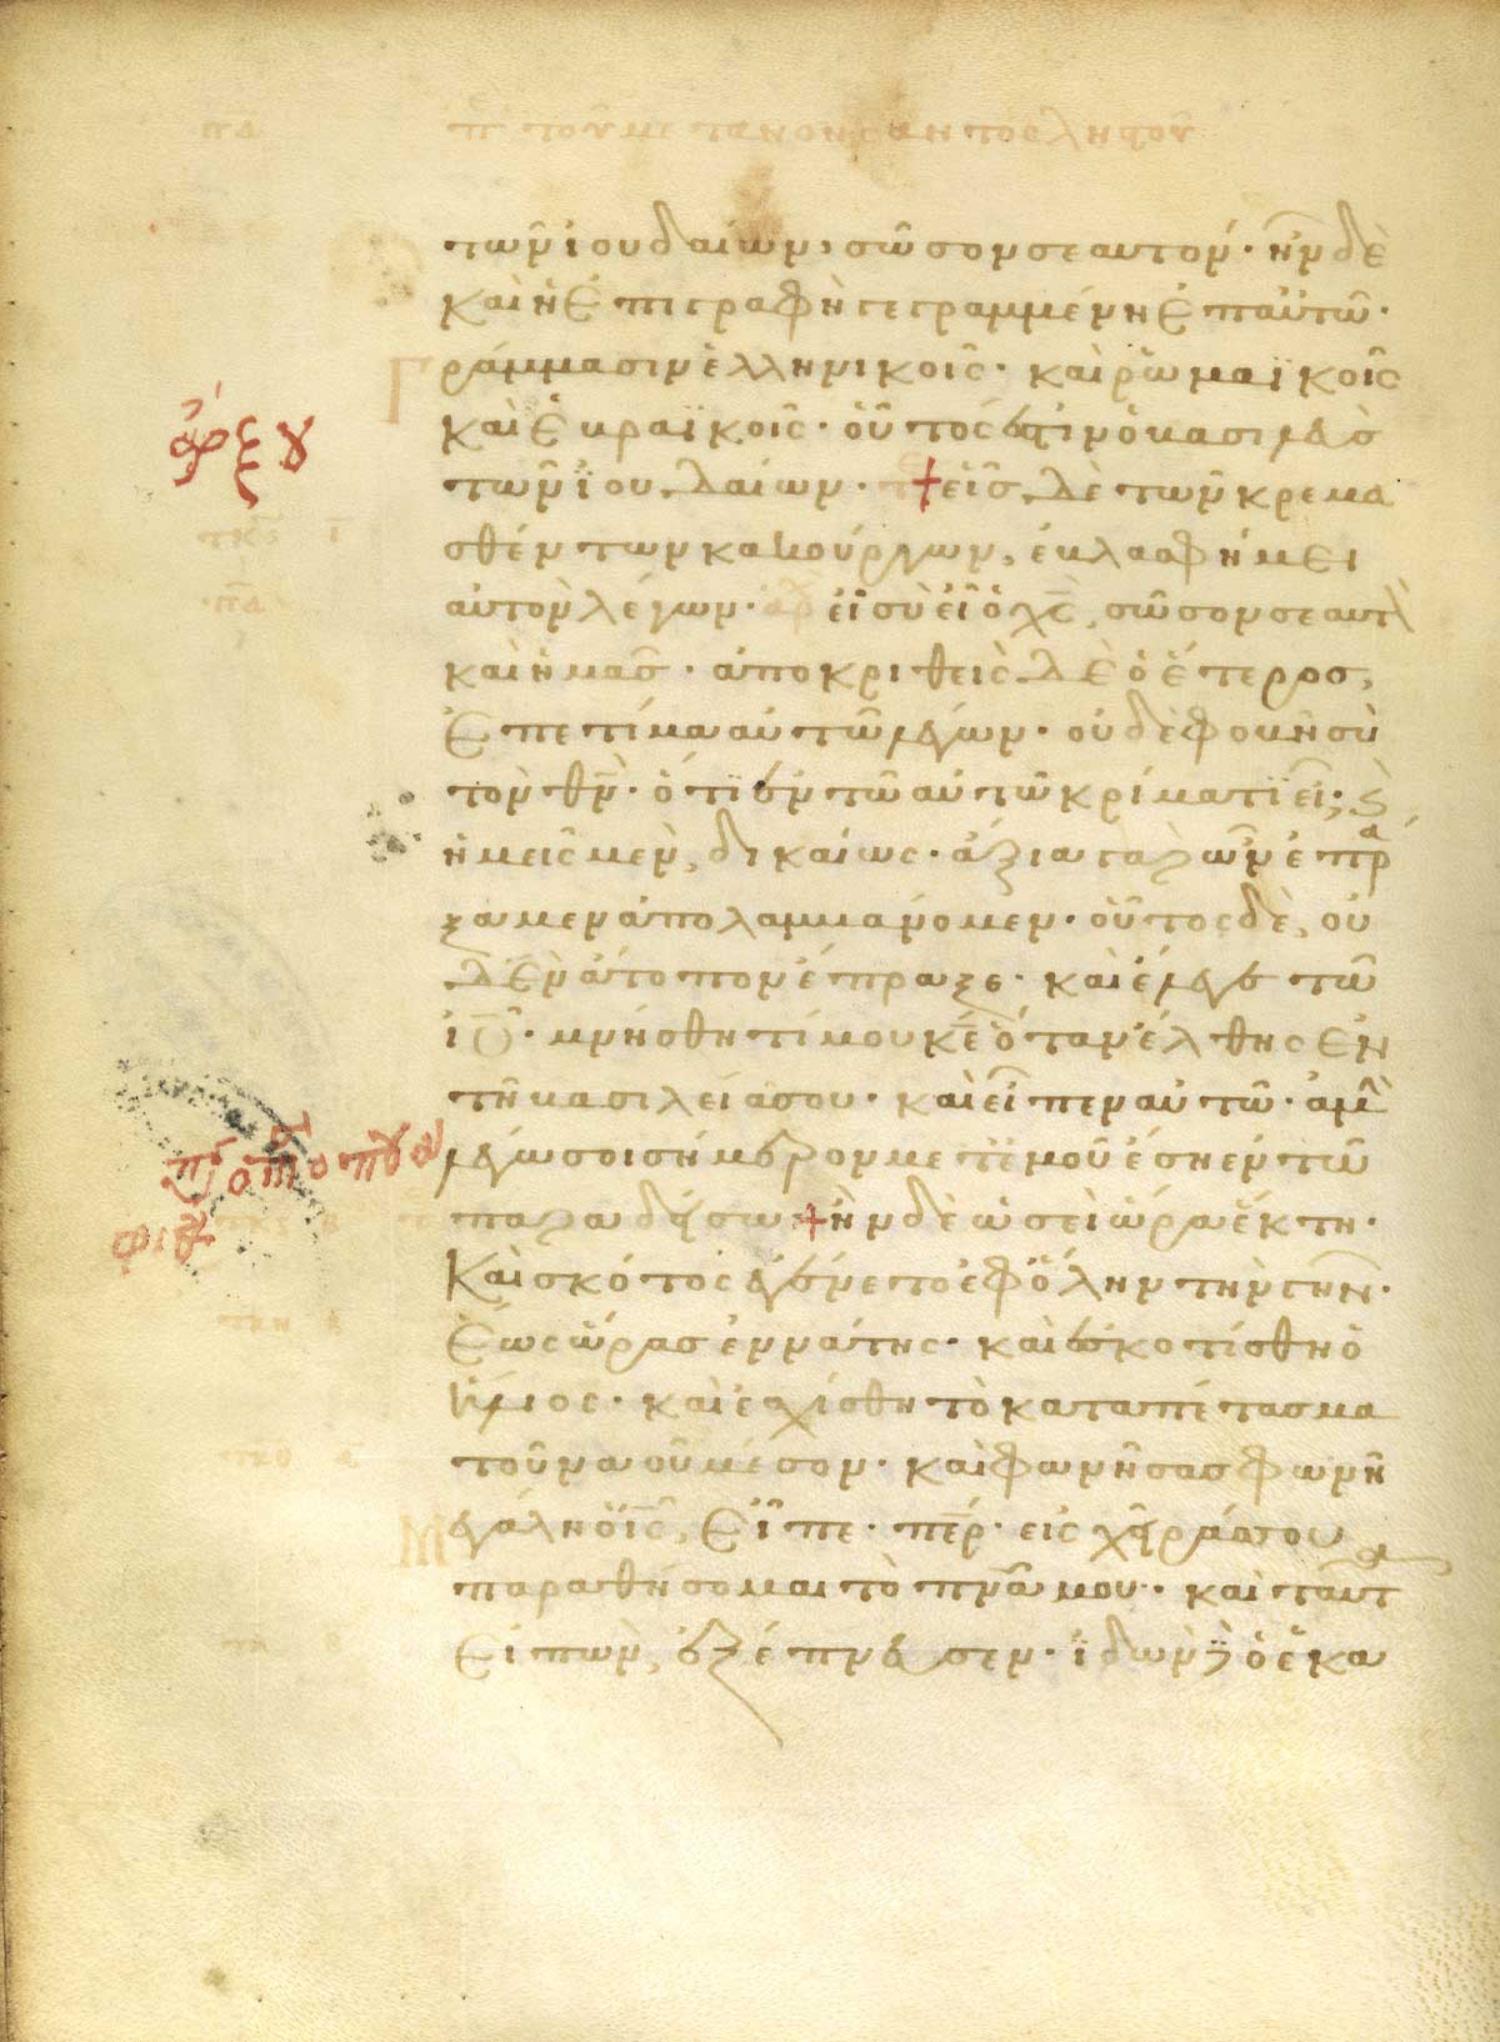 πδ π του μετανοησαντος ληστου
τῶν ἰουδαίων, σῶσον σεαυτόν· ἦν δὲ
καὶ ἡ ἐπιγραφὴ γεγραμμένη ἐπ αὐτῶ·
γράμμασιν ἑλληνικοῖς· καὶ ῥωμαϊκοῖς
καὶ ἑβραϊκοῖς· οὗτός ἐστιν ὁ βασιλεὺσ
τῶν ἰουδαίων· εἷσ δὲ τῶν κρεμα
σθέντων κακούργων, ἐβλασφήμει
αὐτὸν λέγων· εἰ σὺ εἶ ὁ χς, σῶσον σεαυτὸ
καὶ ἡμᾶσ· ἀποκριθεὶς δὲ ὁ ἕτεροσ,
ἐπετίμα αὐτῶ λέγων· οὐδὲ φοβῆ σὺ
τὸν θν· ὅτι ἐν τῶ αὐτῶ κρίματι εἶ; ϗ
ἡμεῖς μὲν, δικαίως· ἄξια γὰρ ὧν ἐπρά
ξαμεν ἀπολαμβάνομεν· οὗτος δὲ, οὐ
δὲν ἄτοπον ἔπραξε· καὶ ἔλεγε τῶ
ιυ· μνήσθητί μου κε ὅταν ἔλθης ἐν
τῆ βασιλεία σου· καὶ εἶπεν αὐτῶ· ἀμὴ
λέγω σοι σήμερον μετ ἐμοῦ ἔση ἐν τῶ
παραδείσω ἦν δὲ ὡσεὶ ὥρα ἕκτη·
Καὶ σκότος ἐγένετο ἐφ ὅλην τὴν γῆν·
ἕως ὥρασ ἐννάτης· καὶ ἐσκοτίσθη ὁ
ἥλιος· καὶ ἐσχίσθη τὸ καταπέτασμα
τοῦ ναοῦ μέσον· καὶ φωνήσασ φωνῆ
Μεγάλη ὁ ις, εἶπε· περ· εἰς χεῖράς σου
παραθήσομαι τὸ πνα μου· καὶ ταῦτα
εἰπὼν, ἐξέπνευσεν· ἰδὼν δὲ ὁ ἑκα